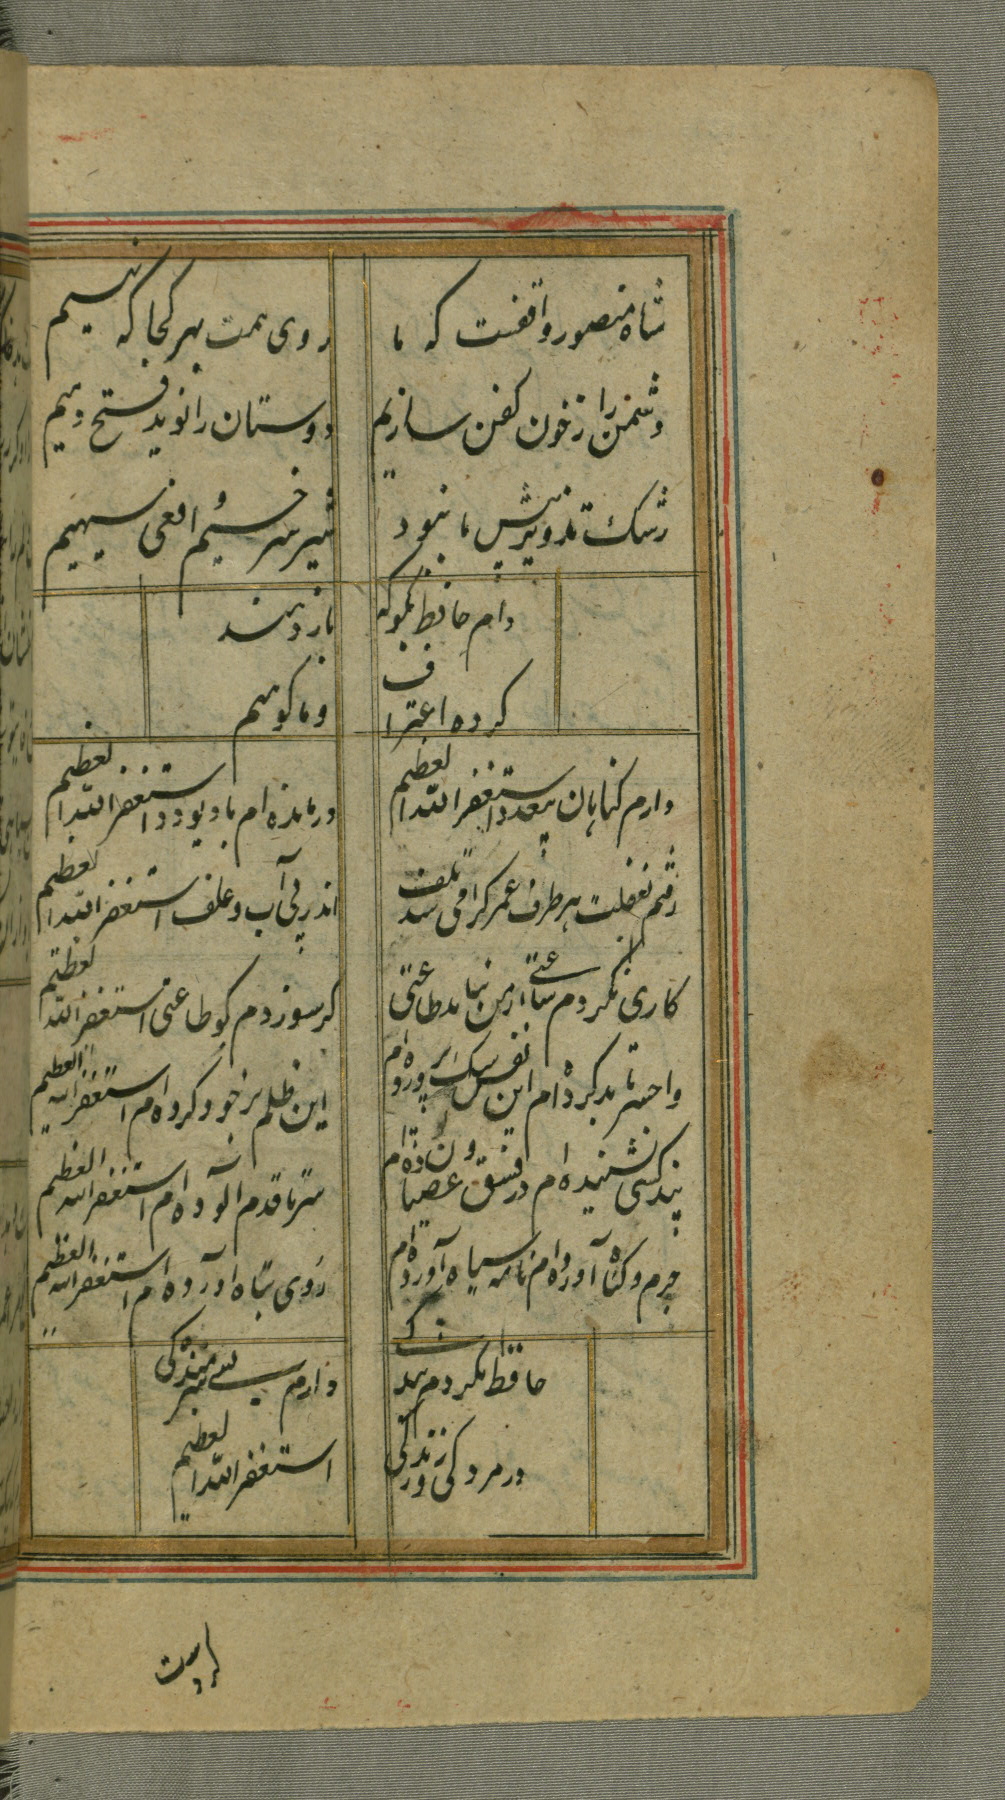 شاه منصور واقفست که ما
روی همت بهر کجا که نهیم
دشمن را ز خون کفن سازیم
دوستان را نوید فتح دهیم
شیر سرخیم و افعی سیهیم
وام حافظ بگو که
باز دهند
کرده اعتراف
و ما گوهیم
دارم گناهان بیعدد استغفر الله العظیم
درمانده ام با دیو و دد استغفر الله العظیم
رفتم بغفلت هر طرف عمر گرامی شد تلف
اندر پی آب و علف استغفر الله العظیم
کاری نکردم ساعتی از من نیامد طاعتی
گر سوز دم کو طاعتی استغفر الله العظیم
واحسرتا بد کرده ام این نفس سگ پرورده ام
این ظلم بر خود کرده ام استغفر الله العظیم
پند کسی نشنیده ام در فسق و عصیان
سر تا قدم آلوده ام استغفر الله العظیم
جرم و گناه آورده ام نامه سیاه آورده ام
روی تباه آورده ام استغفر الله العظیم
حافظ نکردم بندگی
دارم بسی شرمندگی
در مردگی و زندگی
استغفر الله العظیم